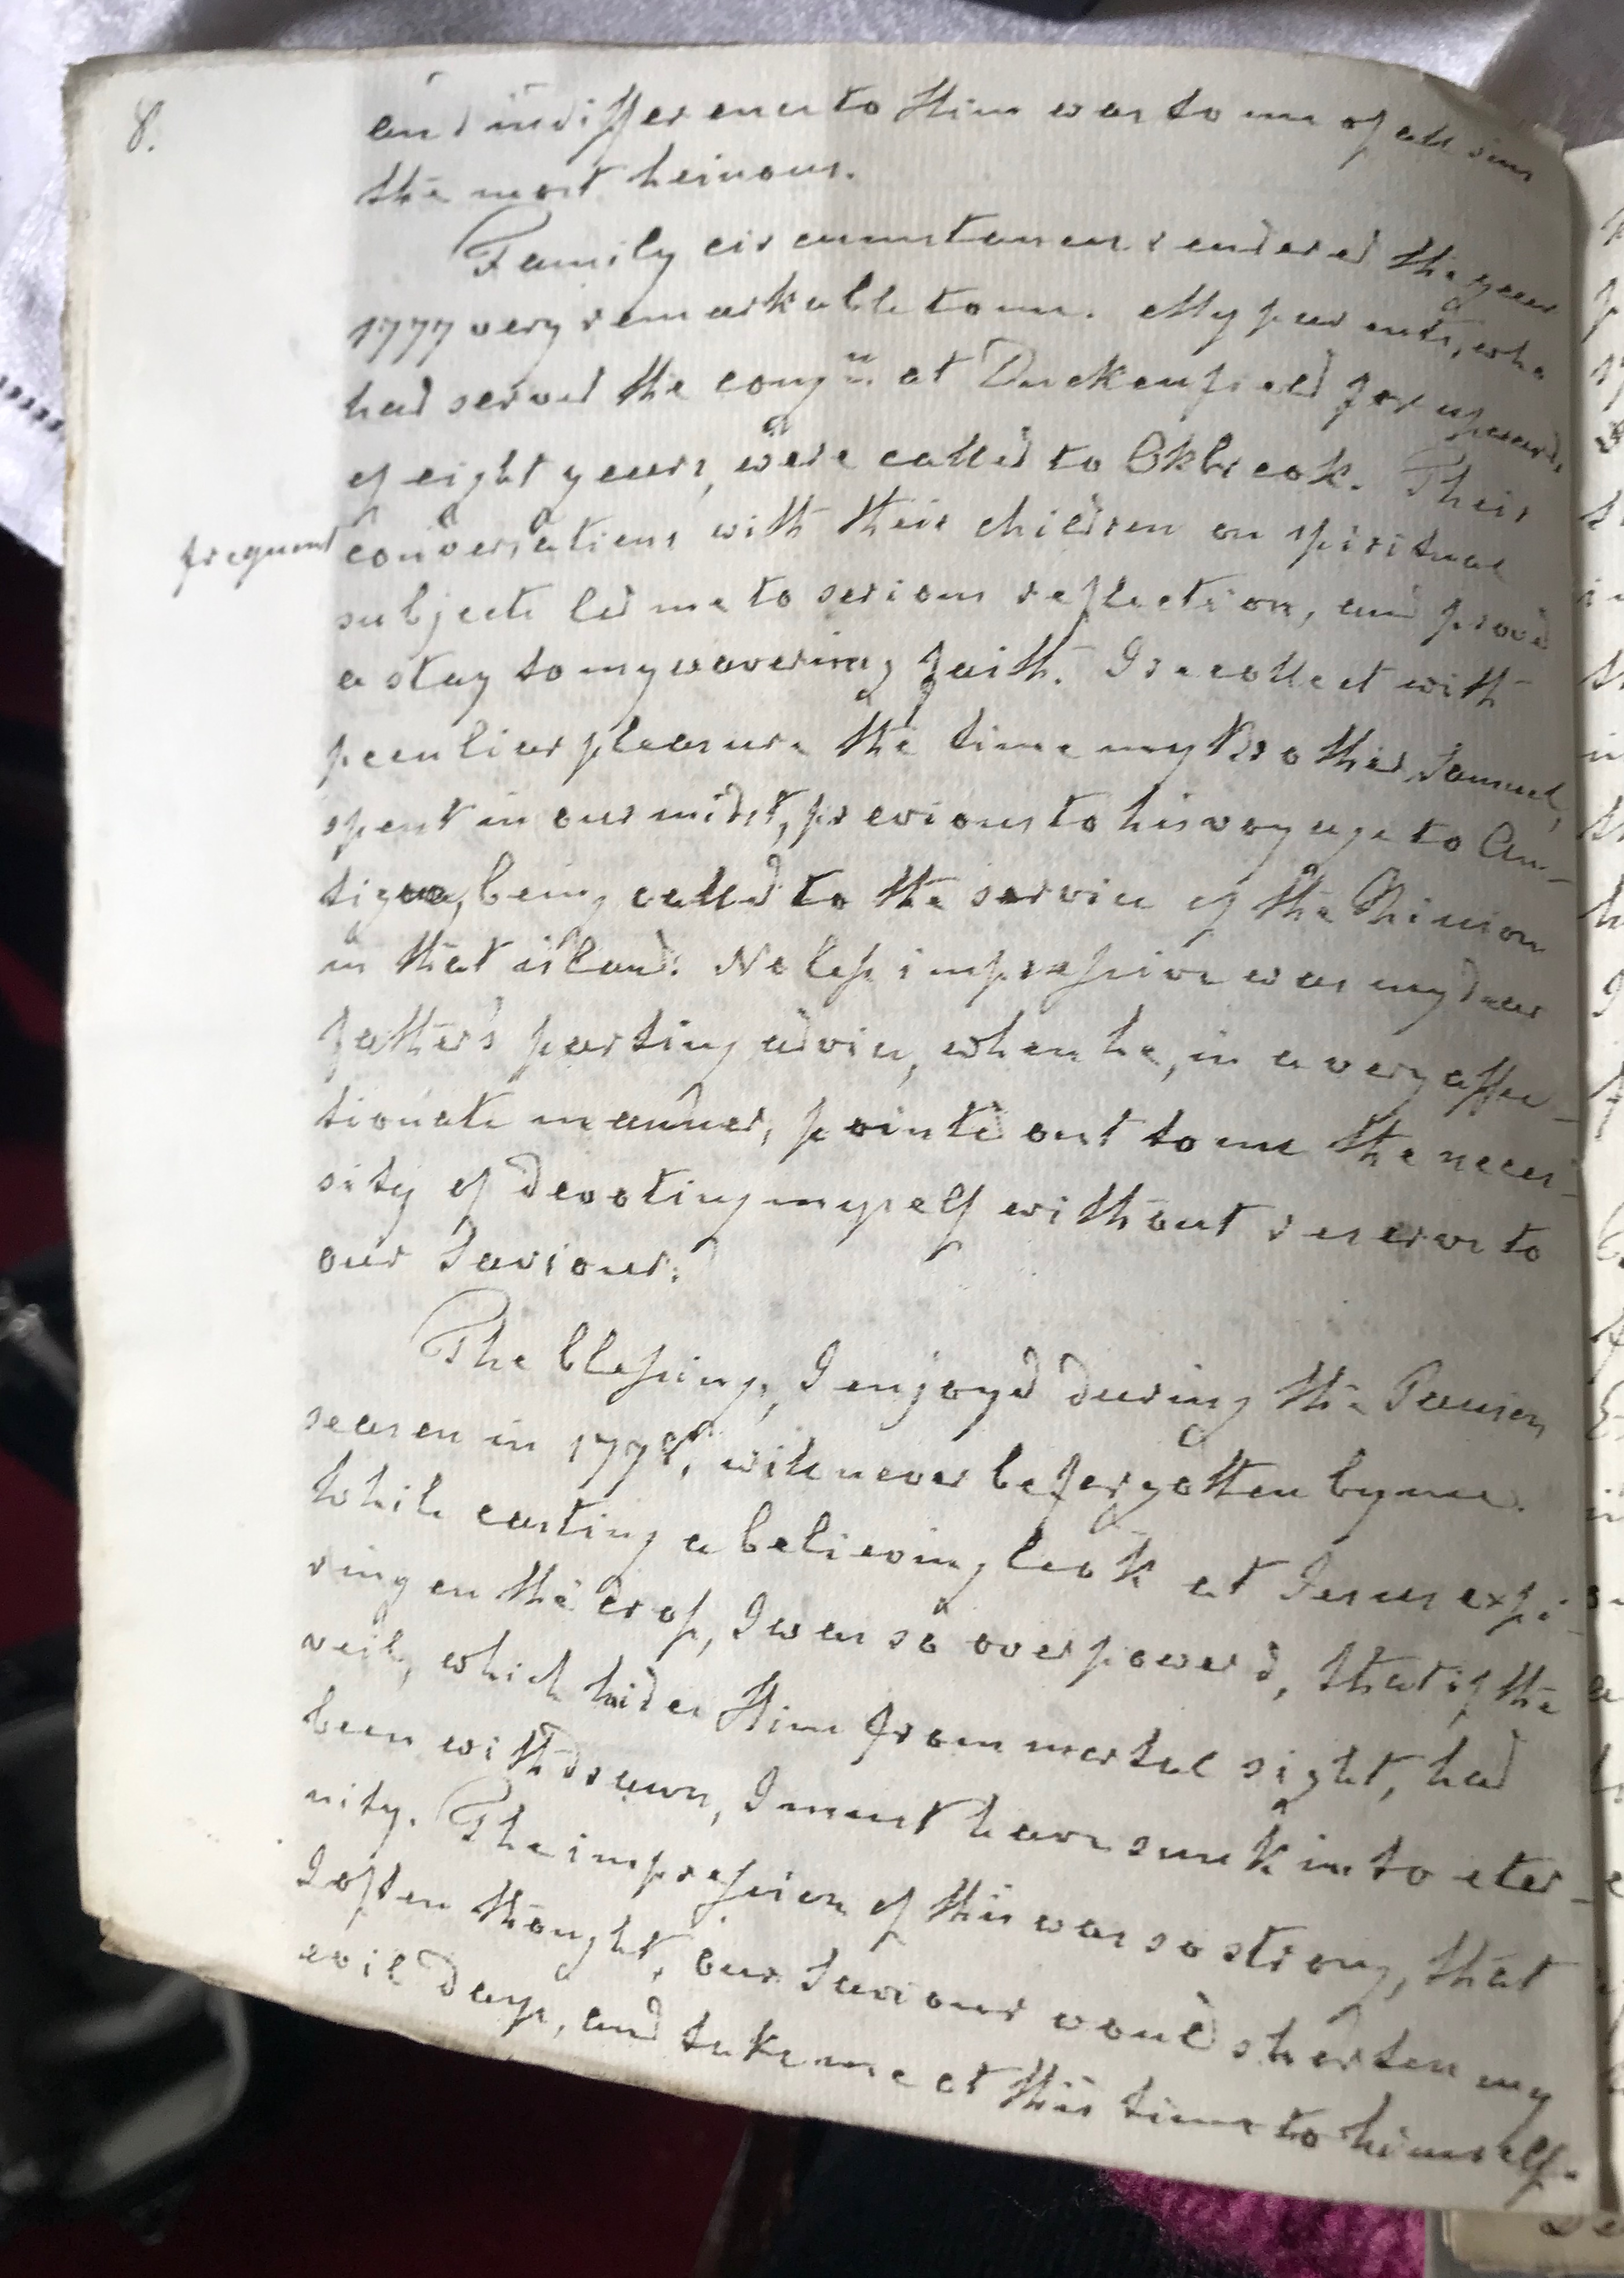 8.
and indifference to Him was to me of all sins
the most heinous.
Family circumstances rendered the year
1777 very remarkable to me. My parents, who
had served the congn. at Duckenfield for upwards
of eight years, were called to Okbrook. Their
frequent conversations with their children on spiritual
subjects led me to serious reflection, and prov'd
a stay to my wavering faith. I recollect with
peculiar pleasure the time my Brother Samuel,
spent in our midst, previous to his voyage to An-
tigua, being called to the service of the Mission
in that island. No less impressive was my dear
father's parting advice, when he, in a very affec-
tionate manner, pointed out to me the neces-
sity of devoting myself without reserve to
our Saviour.
The blessing, I enjoyd during the Passion
season in 1778, will never be forgotten by me.
While casting a believing look at Jesus expi-
ring on the cross, I was so overpowerd, that if the
veil, which hides Him from mortal sight, had
been withdrawn, I must have sunk into eter-
nity. The impression of this was so strong, that
I often thought, our Saviour would shorten my
evil days, and take me at this time to himself.